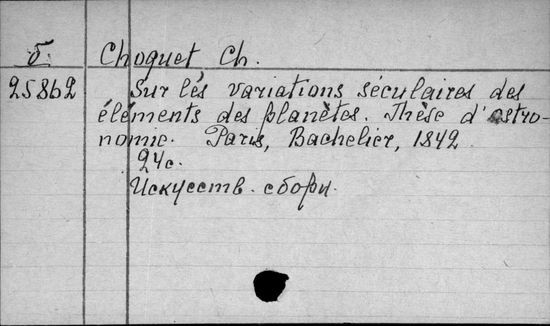 б. Choquet Ch.
25862 Sur les variations séculaires des
éléments des planètes. Thèse d'astro-
nomie. Paris, Bachelier, 1842
24с.
Искусств. сборн.